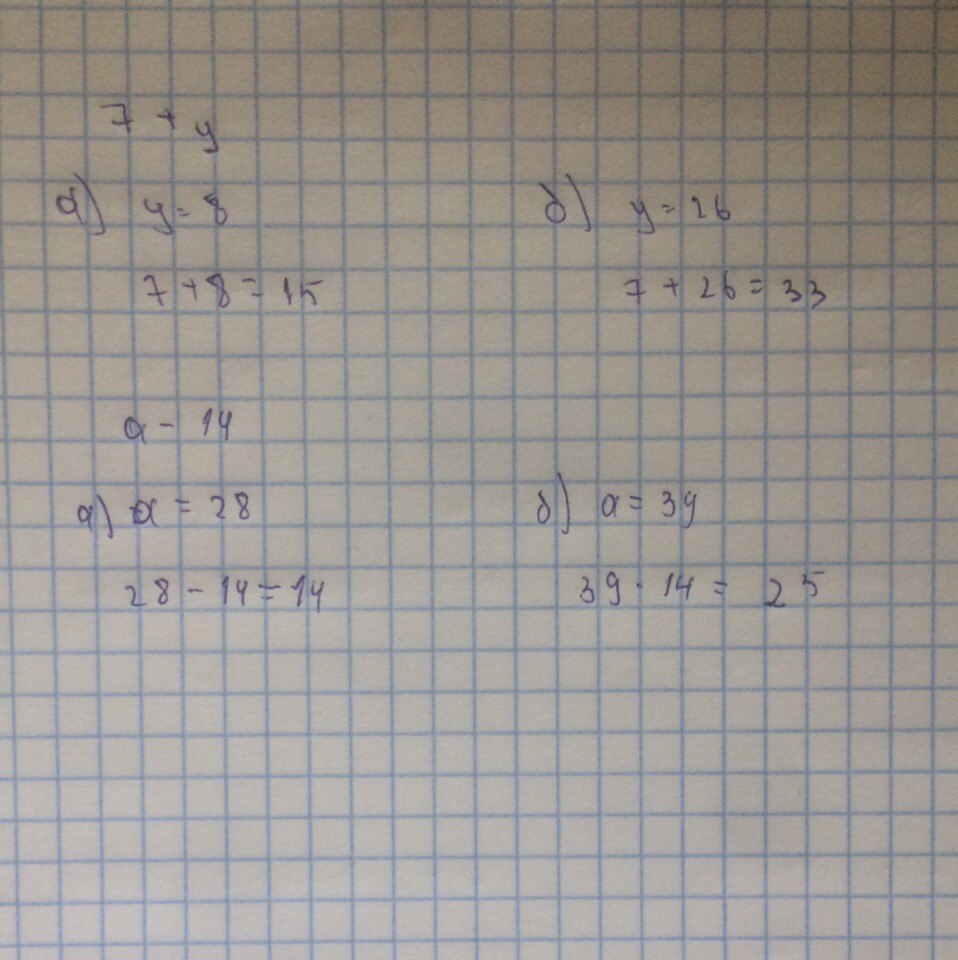 7 + y
а) y = 8
б) y = 26
7 + 8 = 15
7 + 26 = 33
a - 14
а) a = 28
б) a = 39
28 - 14 = 14
39 - 14 = 25